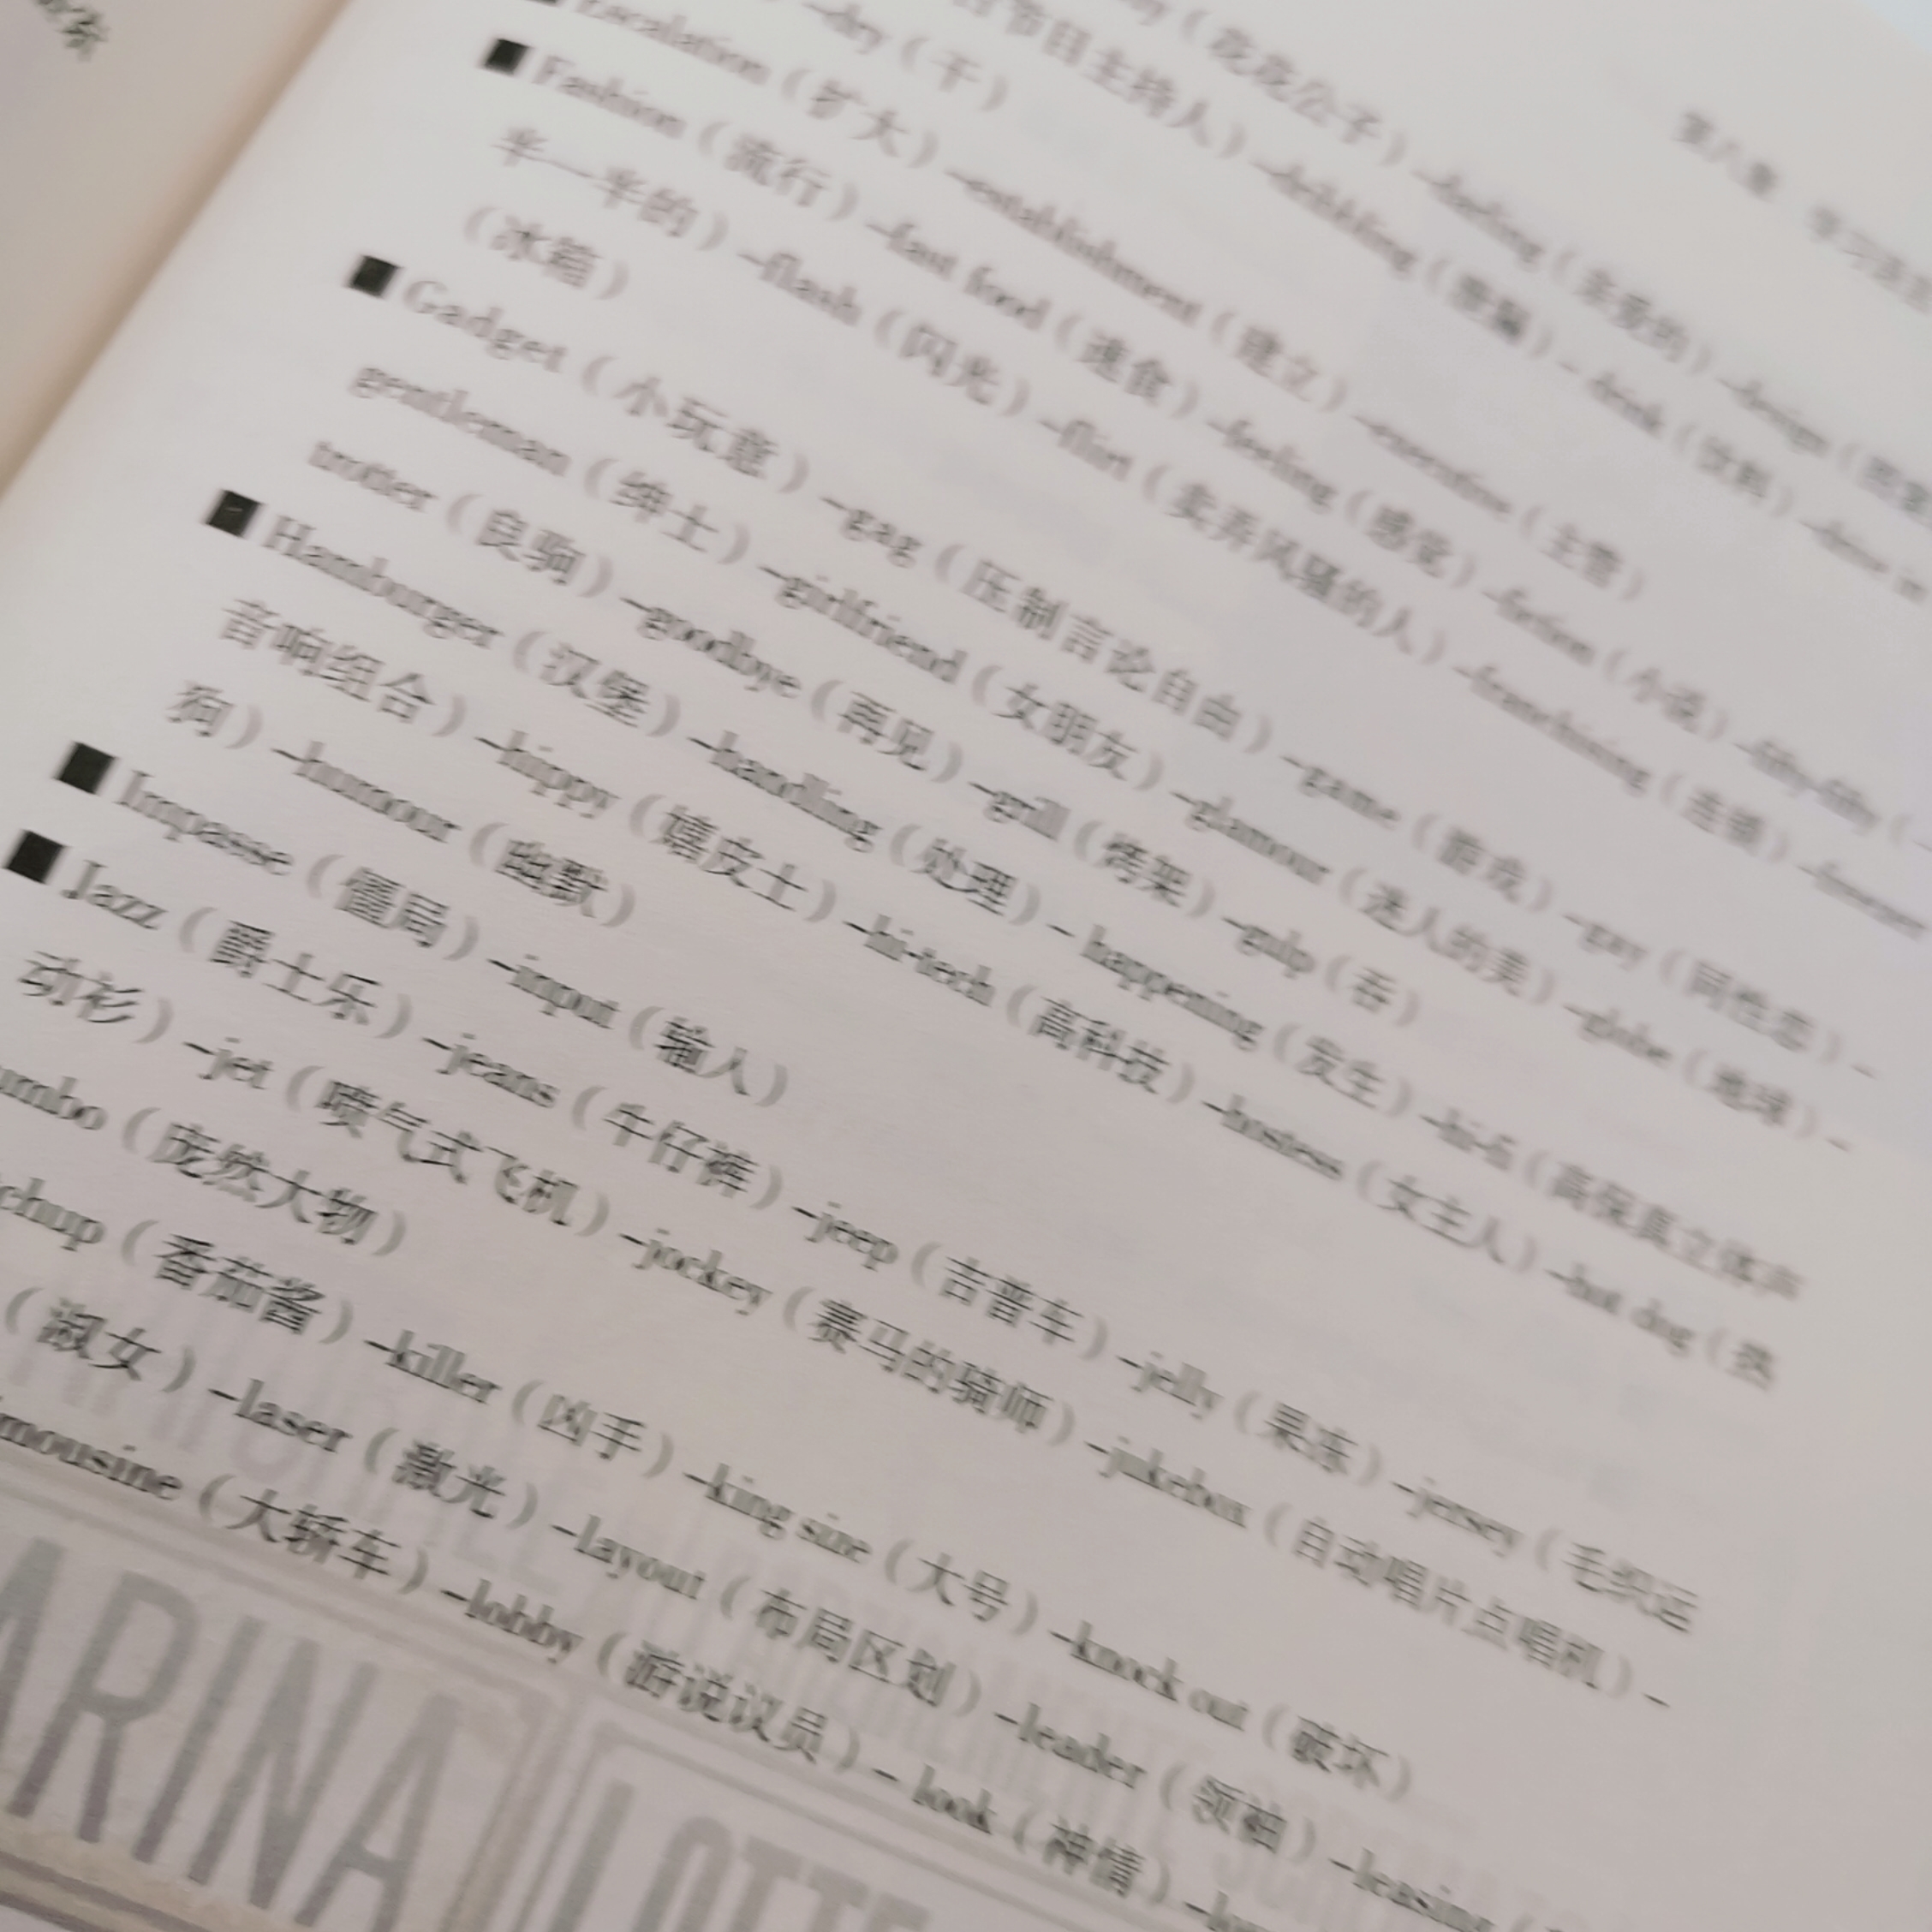 第八章 学习语言
（花花公子）-darling（亲爱的）-design（图案
节目主持人）-dribbling（带骗）- drink（饮料）-drive in
-dry（干）
Escalation（扩大）-establishment（建立）-executive（主管）
■ Fashion（流行）-fast food（速食）-feeling（感觉）-fiction（小说）-fifty-fifty（一
半一半的）-flash（闪光）-flirt（卖弄风骚的人）-franchising（连锁）-freezer
（冰箱）
■ Gadget（小玩意）-gag（压制言论自由）-game（游戏）-gay（同性恋）-
gentleman（绅士）-girlfriend（女朋友）-glamour（迷人的美）-globe（地球）-
trotter（良驹）-goodbye（再见）-grill（烤架）-gulp（吞）
■ Hamburger（汉堡）-handling（处理）- happening（发生）-hi-fi（高保真立体声
音响组合）-hippy（嬉皮士）-hi-tech（高科技）-hostess（女主人）-hot dog（热
狗）-humour（幽默）
■ Impasse（僵局）-input（输入）
■ Jazz（爵士乐）-jeans（牛仔裤）-jeep（吉普车）-jelly（果冻）-jersey（毛织运
动衫）-jet（喷气式飞机）-jockey（赛马的骑师）-jukebox（自动唱片点唱机）-
umbo（庞然大物）
chup（番茄酱）-killer（凶手）-king size（大号）-knock out（破坏）
（淑女）-laser（激光）-layout（布局区划）-leader（领袖）-leasing
mousine（大轿车）-lobby（游说议员）- look（神情）
ARINA LOTTE